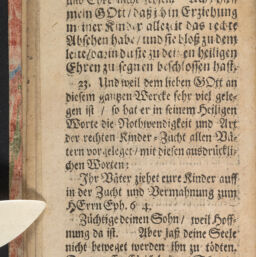 mein GOtt / daß ich in Erziehung
meiner Kinder allezeit das rechte
Absehen habe / und sie bloß zu dem
leite / darin du sie zu dei en heiligen
Ehren zu segnen beschlossen hast.
23. Und weil dem lieben GOtt an
diesem gantzen Wercke sehr viel gele-
gen ist / so hat er in seinem Heiligen
Worte die Nothwendigkeit und Art
der rechten Kinder-Zucht allen Vä-
tern vorgeleget / mit diesen ausdrückli-
chen Worten:
Ihr Väter ziehet eure Kinder auff
in der Zucht und Vermahnung zum
HErrn Eph. 6 4.
Züchtige deinen Sohn / weil Hoff-
nung da ist. Aber laß deine Seele
nicht beweget werden ihn zu tödten.